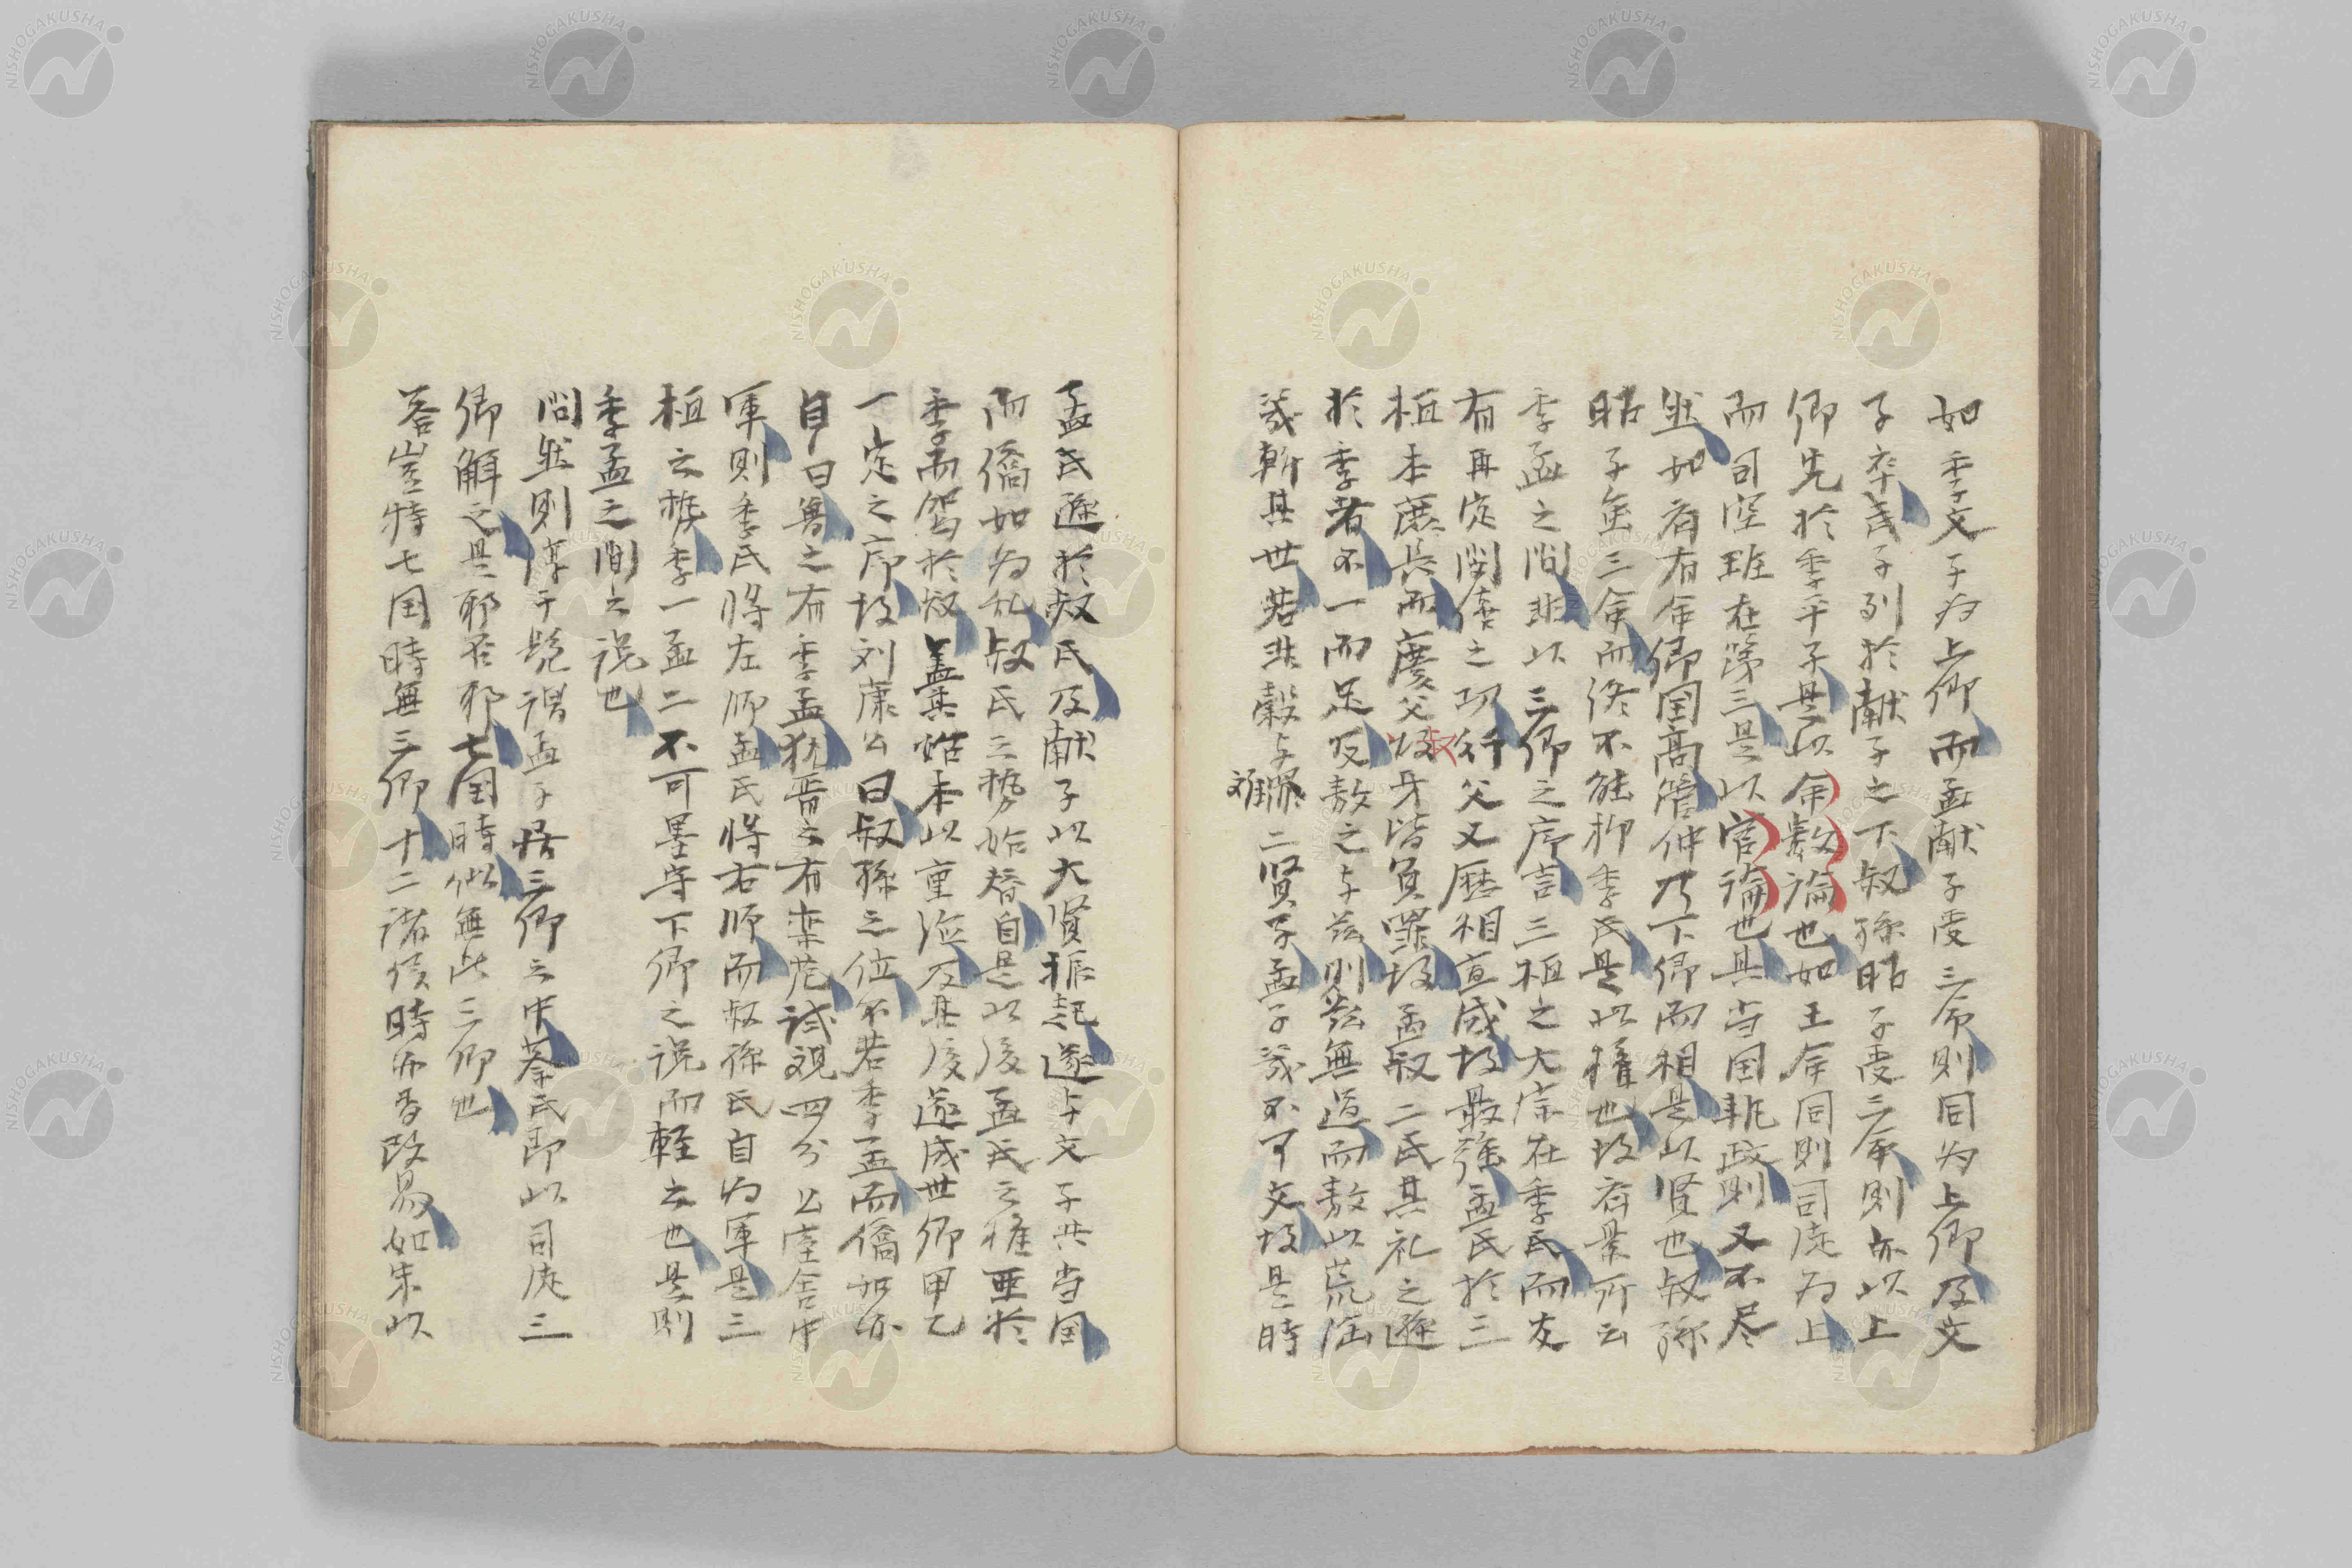 如季文子為上卿而孟献子受三命則同為上卿及文
子卒武子列於献子之下叔孫昭子受三命則亦以上
卿先於季平子是以命数論也如王命同則司徒為上
而司空班在第三是以官論也其当国執政則又不尽
然如斉有命卿国高管仲乃下卿而相是以賢也叔孫
昭子無三命而終不能抑季氏是以権也故斉景所云
季孟之間非以三卿之序言三桓之大宗在季氏而友
有再定閔僖之功行父又歴相宣成故最強孟氏於三
桓本庶長而慶父叔牙皆負罪故孟叔二氏其礼之遜
於季者不一而足及敖之与茲則茲無過而敖以荒淫
幾斬其世若非穀与難二賢子孟子幾不可支故是時
孟氏遜於叔氏及献子以大賢振起遂与文子共当国
而僑如為乱叔氏之勢始替自是以後孟氏之権亜於
季而駕於叔蓋其始本以重
一定之序故刘康公曰叔孫之位不若季孟而僑如亦
自曰魯之有季孟猶晋之有欒范試観四分公室舎中
軍則季氏将左師孟氏将右師而叔孫氏自為軍是三
桓之勢季一孟二不可墨守下卿之説而軽之也是則
季孟之間之説也
問然則淳于髡謂孟子居三卿之中蔡氏即以司徒三
卿解之是耶否耶七国時似無此三卿也
答豈特七国時無三卿十二諸侯時亦多改易如宋以